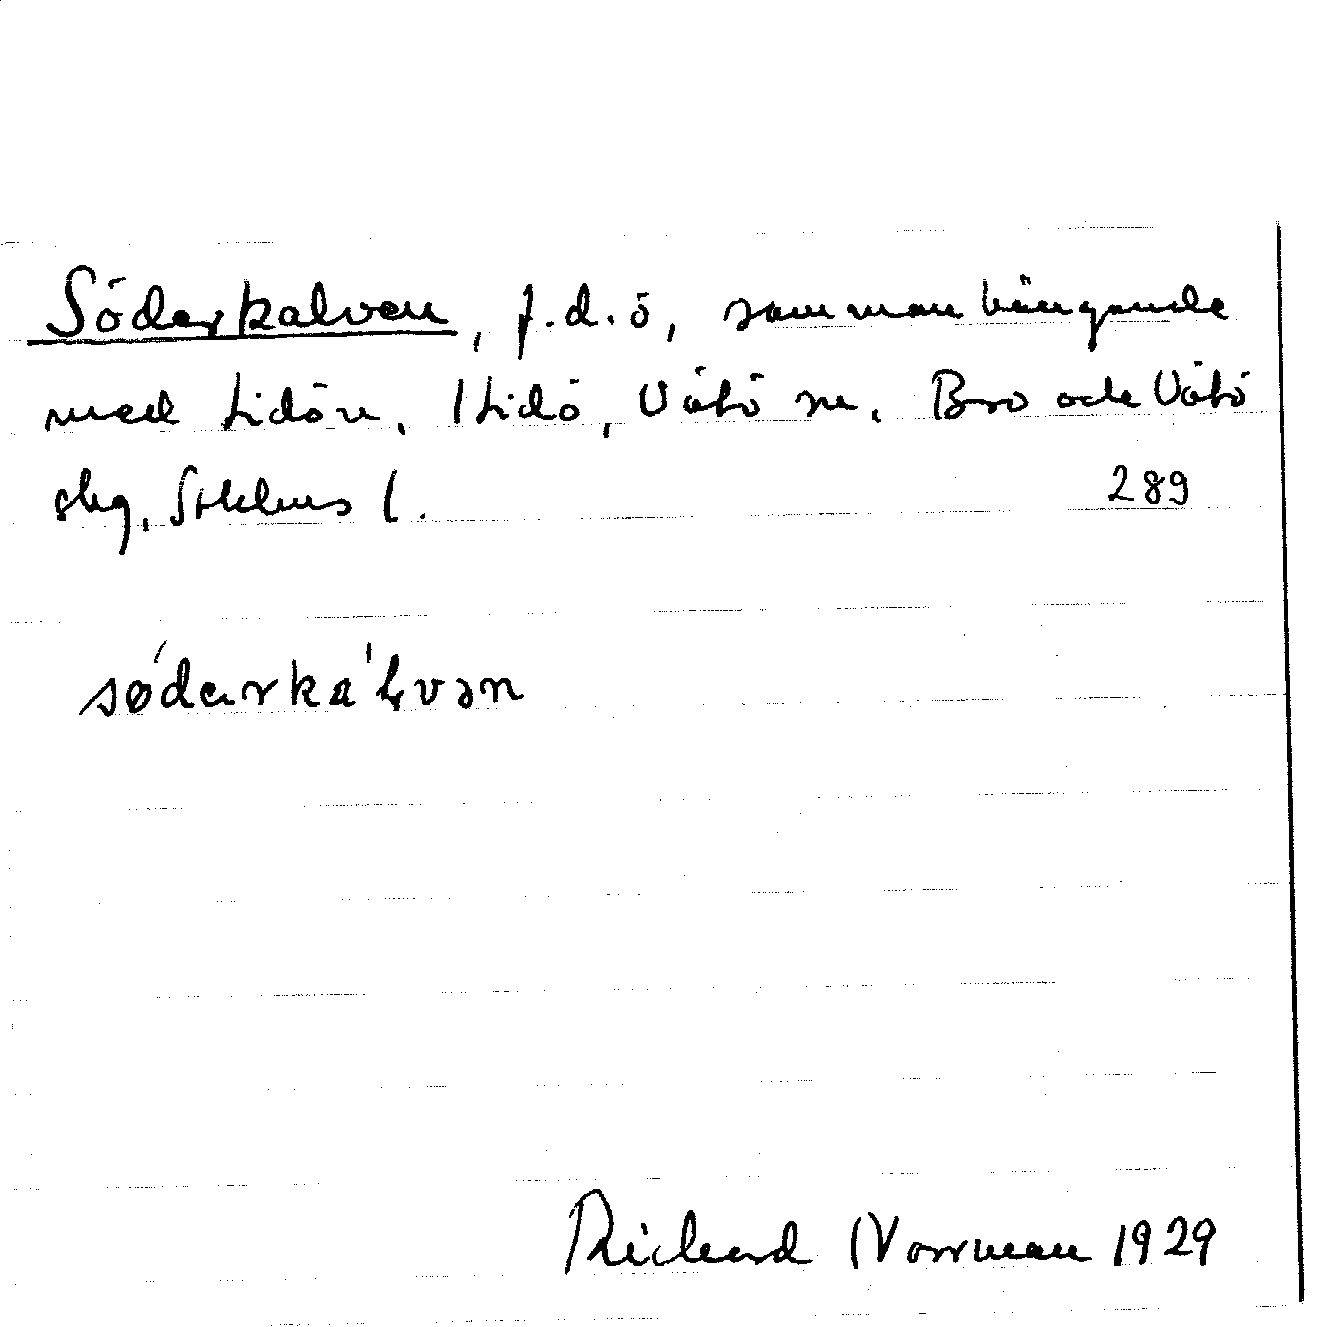 Söderkalven, f.d. ö, sammanhängande
med Lidön. Lidö, Vätö sn. Bro och Vätö
skg, Sthlms l. 289
södərkáɽvən
Richard Norrman 1929